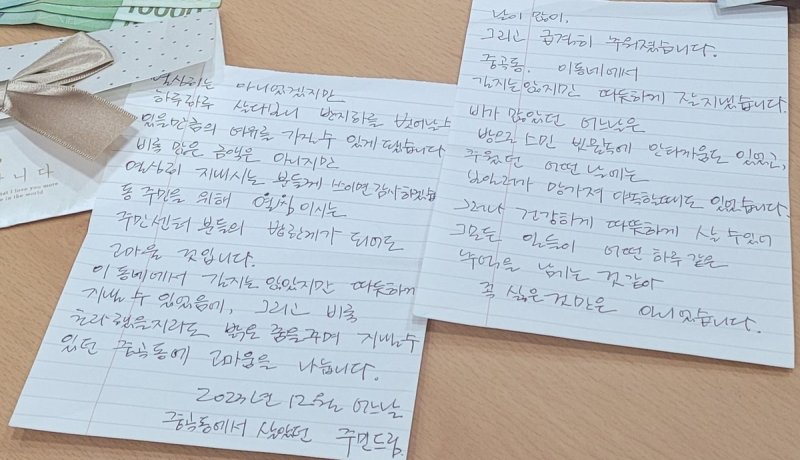 10000
니다
날이 많이,
그리고 급격히 추워졌습니다.
중곡동. 이동네에서
길지는 않지만 따뜻하게 잘지냈습니다.
비가 많았던 어느날은
방으로 스민 빗물덕에 안타까움도 있었고,
추웠던 어떤 날에는
보일러가 망가져 야속했을때도 있었습니다.
그러나 건강하게 따뜻하게 살 수있어
그모든 일들이 어떤 하루 같은
추억을 남기는 것같아
꼭 싫은것만은 아니었습니다.
열심히는 아니었겠지만
하루하루 살다보니 반지하를 벗어날수
있을만큼의 여유를 가질수 있게 됐습니다
비록 많은 금액은 아니지만
열심히 지내시는 분들께 쓰이면 감사하겠습
동 주민을 위해 열심이시는
주민센터 분들의 밥한끼가 되어도
고마울 것입니다.
이 동네에서 길지는 않았지만 따뜻하게
지낼 수 있었음에, 그리고 비록
초라했을지라도 밝은 꿈을꾸며 지낼수
있던 중곡동에 고마움을 나눕니다.
2023년 12월 어느날
중곡동에서 살았던 주민드림.